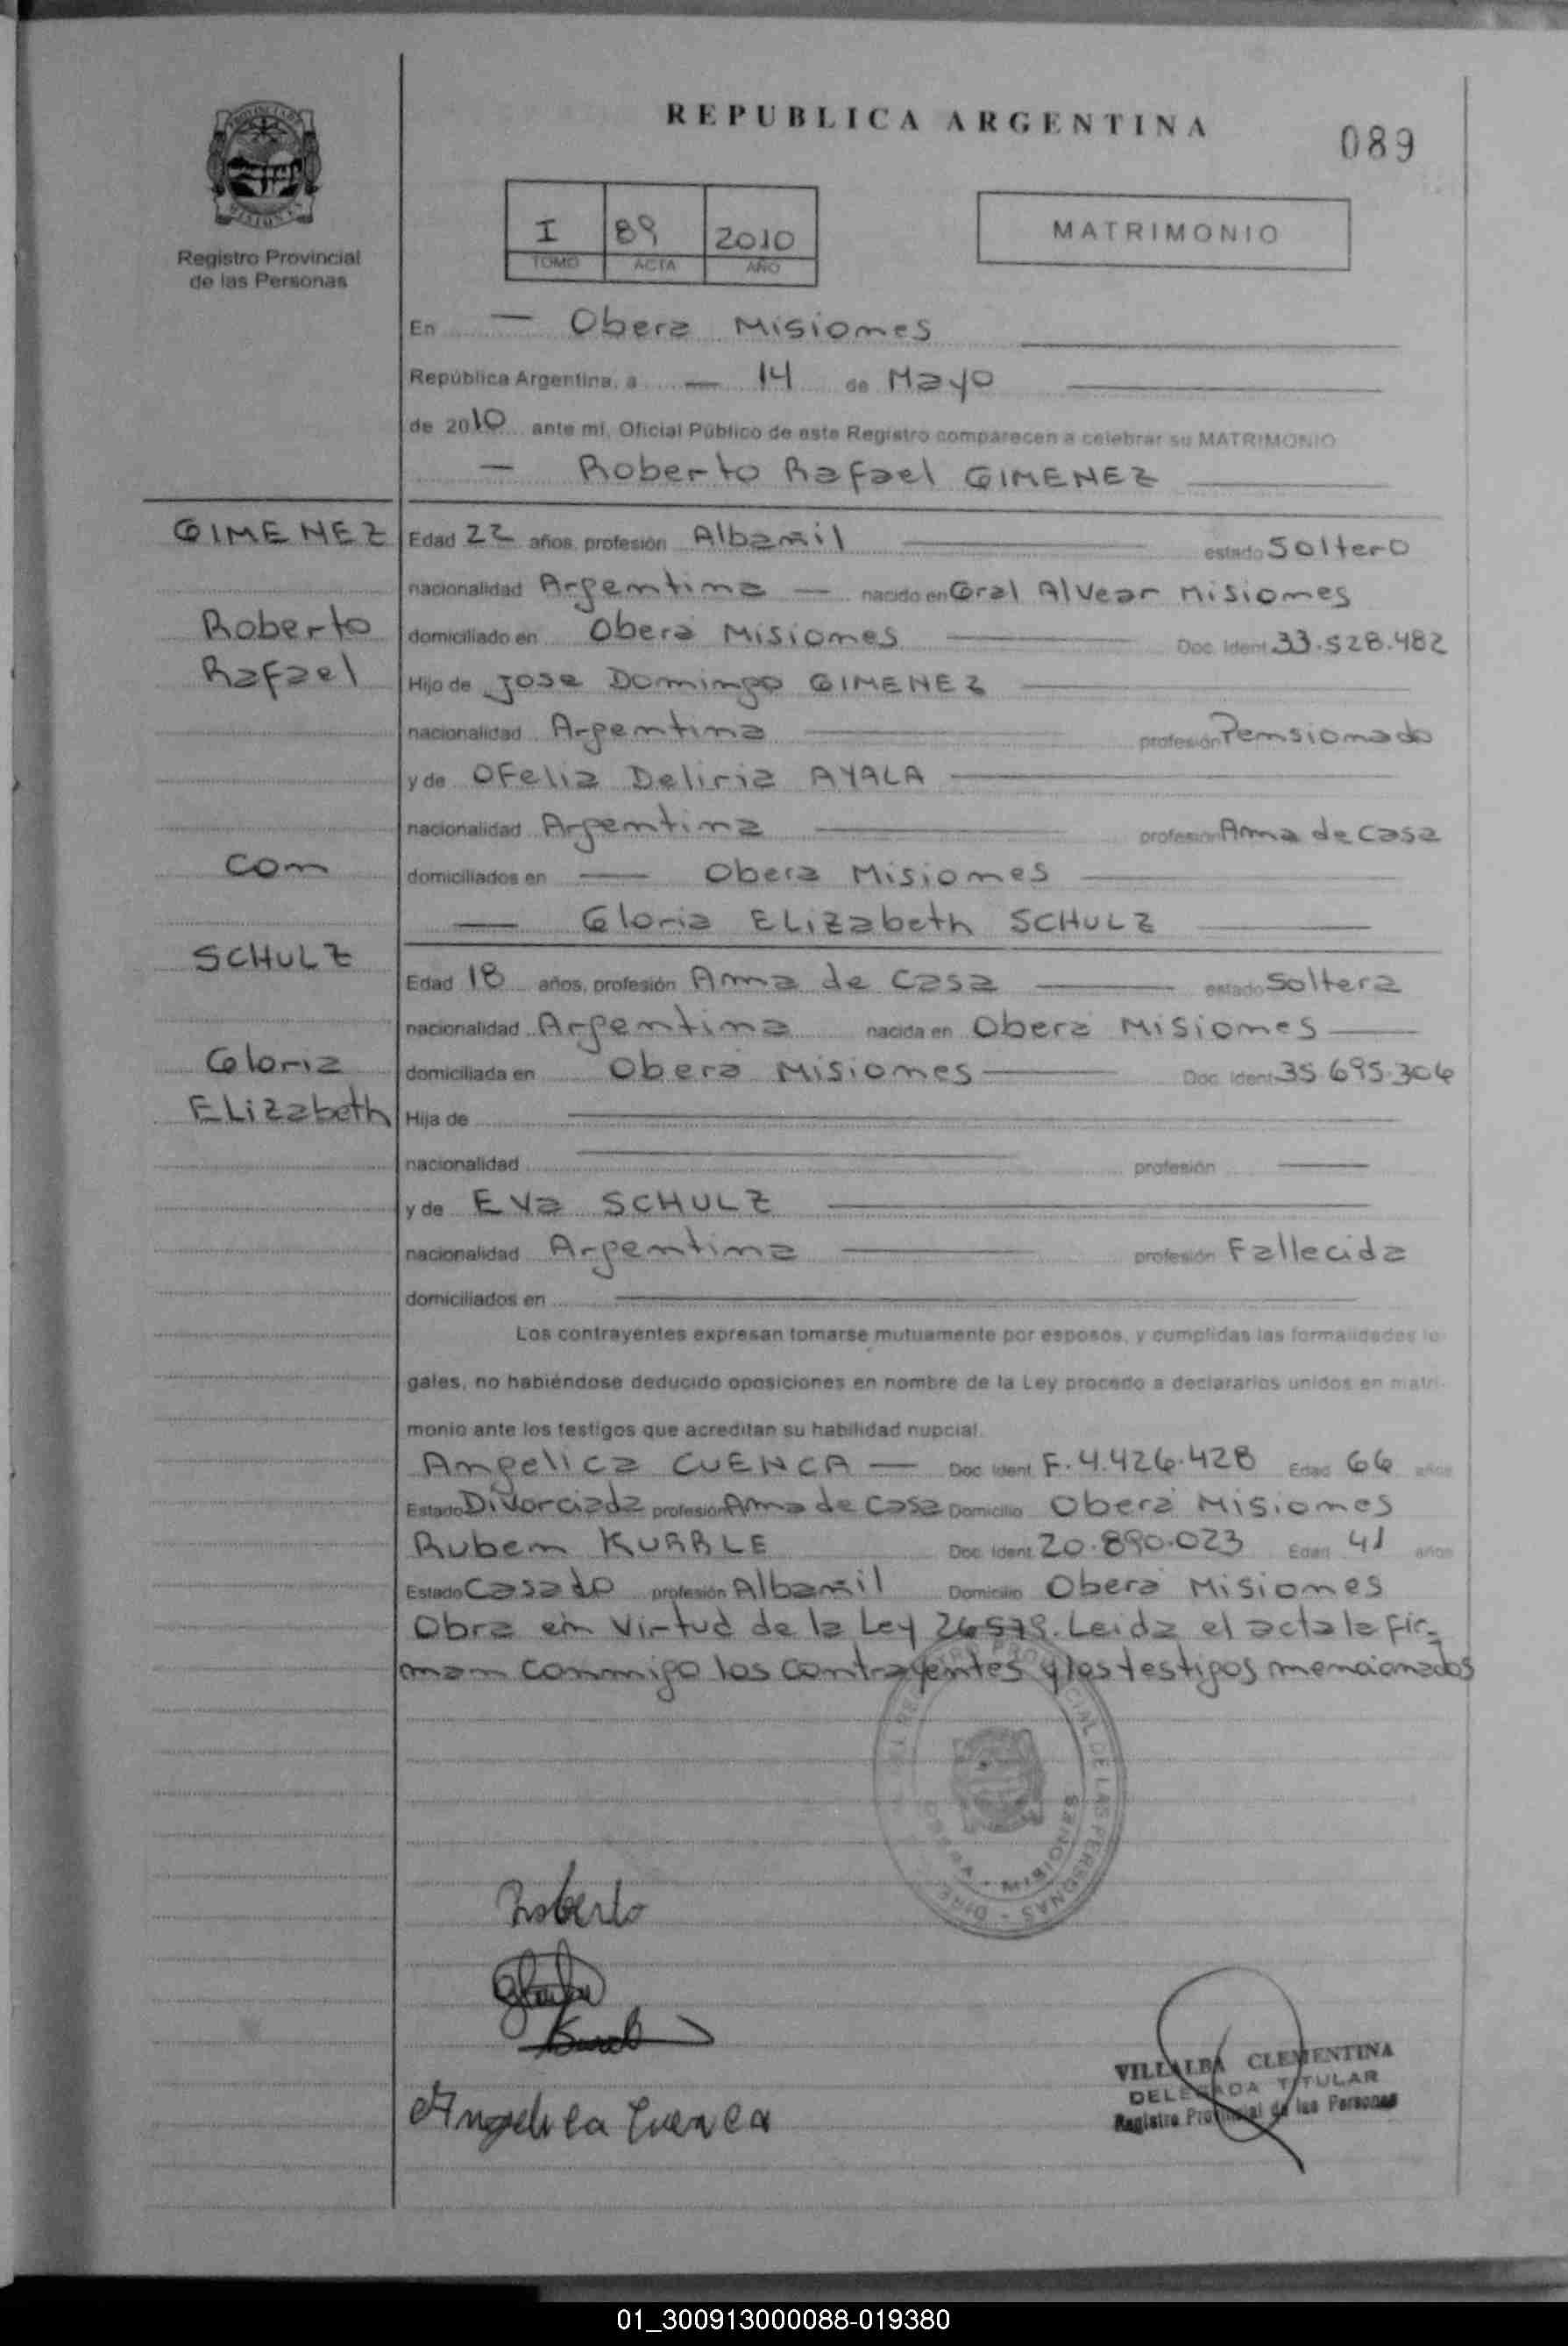 REPUBLICA ARGENTINA
089
PROVINCIA DE
MISIONES
Registro Provincial
de las Personas
I 89 2010
TOMO ACTA AÑO
MATRIMONIO
En — Obera Misiones
República Argentina, a — 14 de Mayo
de 2010 ante mí, Oficial Público de este Registro comparecen a celebrar su MATRIMONIO
— Roberto Rafael GIMENEZ
GIMENEZ
Roberto
Rafael
con
SCHULZ
Gloria
ELizabeth
Edad 22 años, profesión Albañil estado Soltero
nacionalidad Argentina — nacido en Gral Alvear Misiones
domiciliado en Oberá Misiones Doc. Ident. 33.528.482
Hijo de Jose Domingo GIMENEZ
nacionalidad Argentina profesión Pensionado
y de OFelia Deliria AYALA
nacionalidad Argentina profesión Ama de Casa
domiciliados en — Obera Misiones
— Gloria ELizabeth SCHULZ
Edad 18 años, profesión Ama de Casa estado Soltera
nacionalidad Argentina nacida en Oberá Misiones
domiciliada en Oberá Misiones Doc. Ident. 35.695.306
Hija de
nacionalidad profesión
y de Eva SCHULZ
nacionalidad Argentina profesión Fallecida
domiciliados en
Los contrayentes expresan tomarse mutuamente por esposos, y cumplidas las formalidades le-
gales, no habiéndose deducido oposiciones en nombre de la Ley procedo a declararlos unidos en matri-
monio ante los testigos que acreditan su habilidad nupcial.
Angelica CUENCA — Doc. Ident. F.4.426.428 Edad 66 años
Estado Divorciada profesión Ama de Casa Domicilio Oberá Misiones
Ruben KURRLE Doc. Ident. 20.890.023 Edad 41 años
Estado Casado profesión Albañil Domicilio Oberá Misiones
Obra en Virtud de la Ley 26579. Leida el acta la fir-
man conmigo los contrayentes y los testigos mencionados
PROVINCIAL DE LAS PERSONAS
MISIONES
Roberto
Angelica Cuenca
VILLALBA CLEMENTINA
DELEGADA TITULAR
Registro Provincial de las Personas
01_300913000088-019380